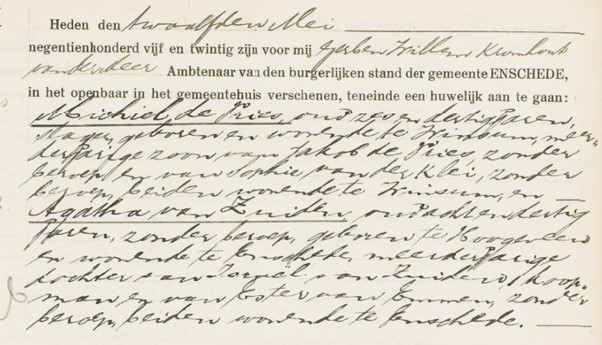 Heden den twaalfden Mei
negentienhonderd vijf en twintig zijn voor mij Gerben Willem Kromhout
van der Meer Ambtenaar van den burgerlijken stand der gemeente ENSCHEDE,
in het openbaar in het gemeentehuis verschenen, teneinde een huwelijk aan te gaan:
Michiel de Vries, oud zes en dertig jaren,
slager, geboren en wonende te Winsum, meer-
derjarige zoon van Jakob de Vries, zonder
beroep en van Sophie van der Klei, zonder
beroep, beiden wonende te Winsum, en
Agatha van Zuiden, oud acht en dertig
jaren, zonder beroep, geboren te Hoogeveen
en wonende te Enschede, meerderjarige
dochter van Israël van Zuiden, koop-
man en van Ester van Emmen, zonder
beroep, beiden wonende te Enschede.